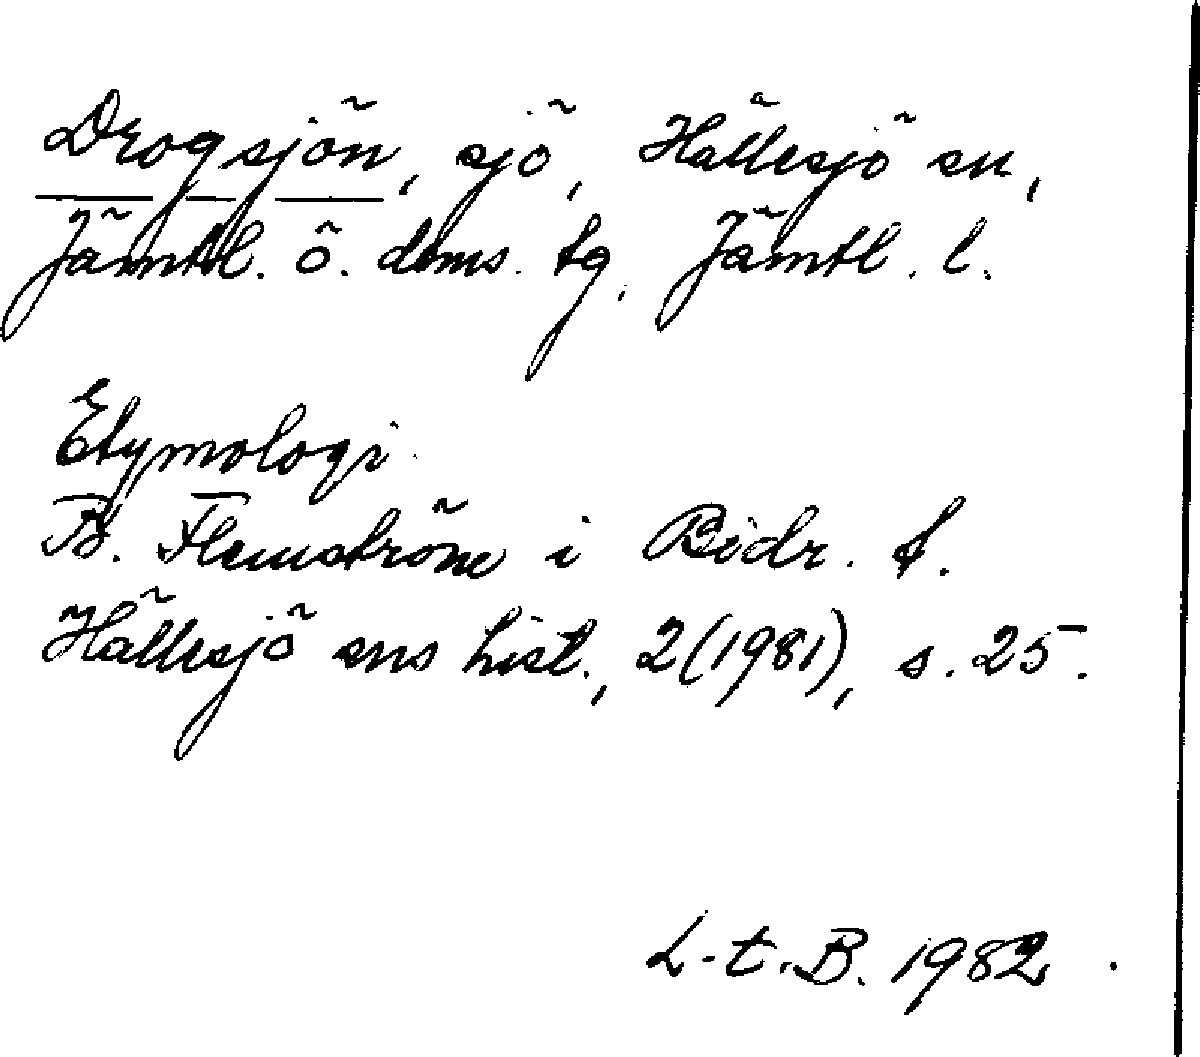 Drogsjön, sjö, Hällesjö sn,
Jämtl. ö. doms. tg, Jämtl. l.
Etymologi
B. Flemström i Bidr. t.
Hällesjö sns hist., 2(1981), s. 25.
L-t. B. 1982.